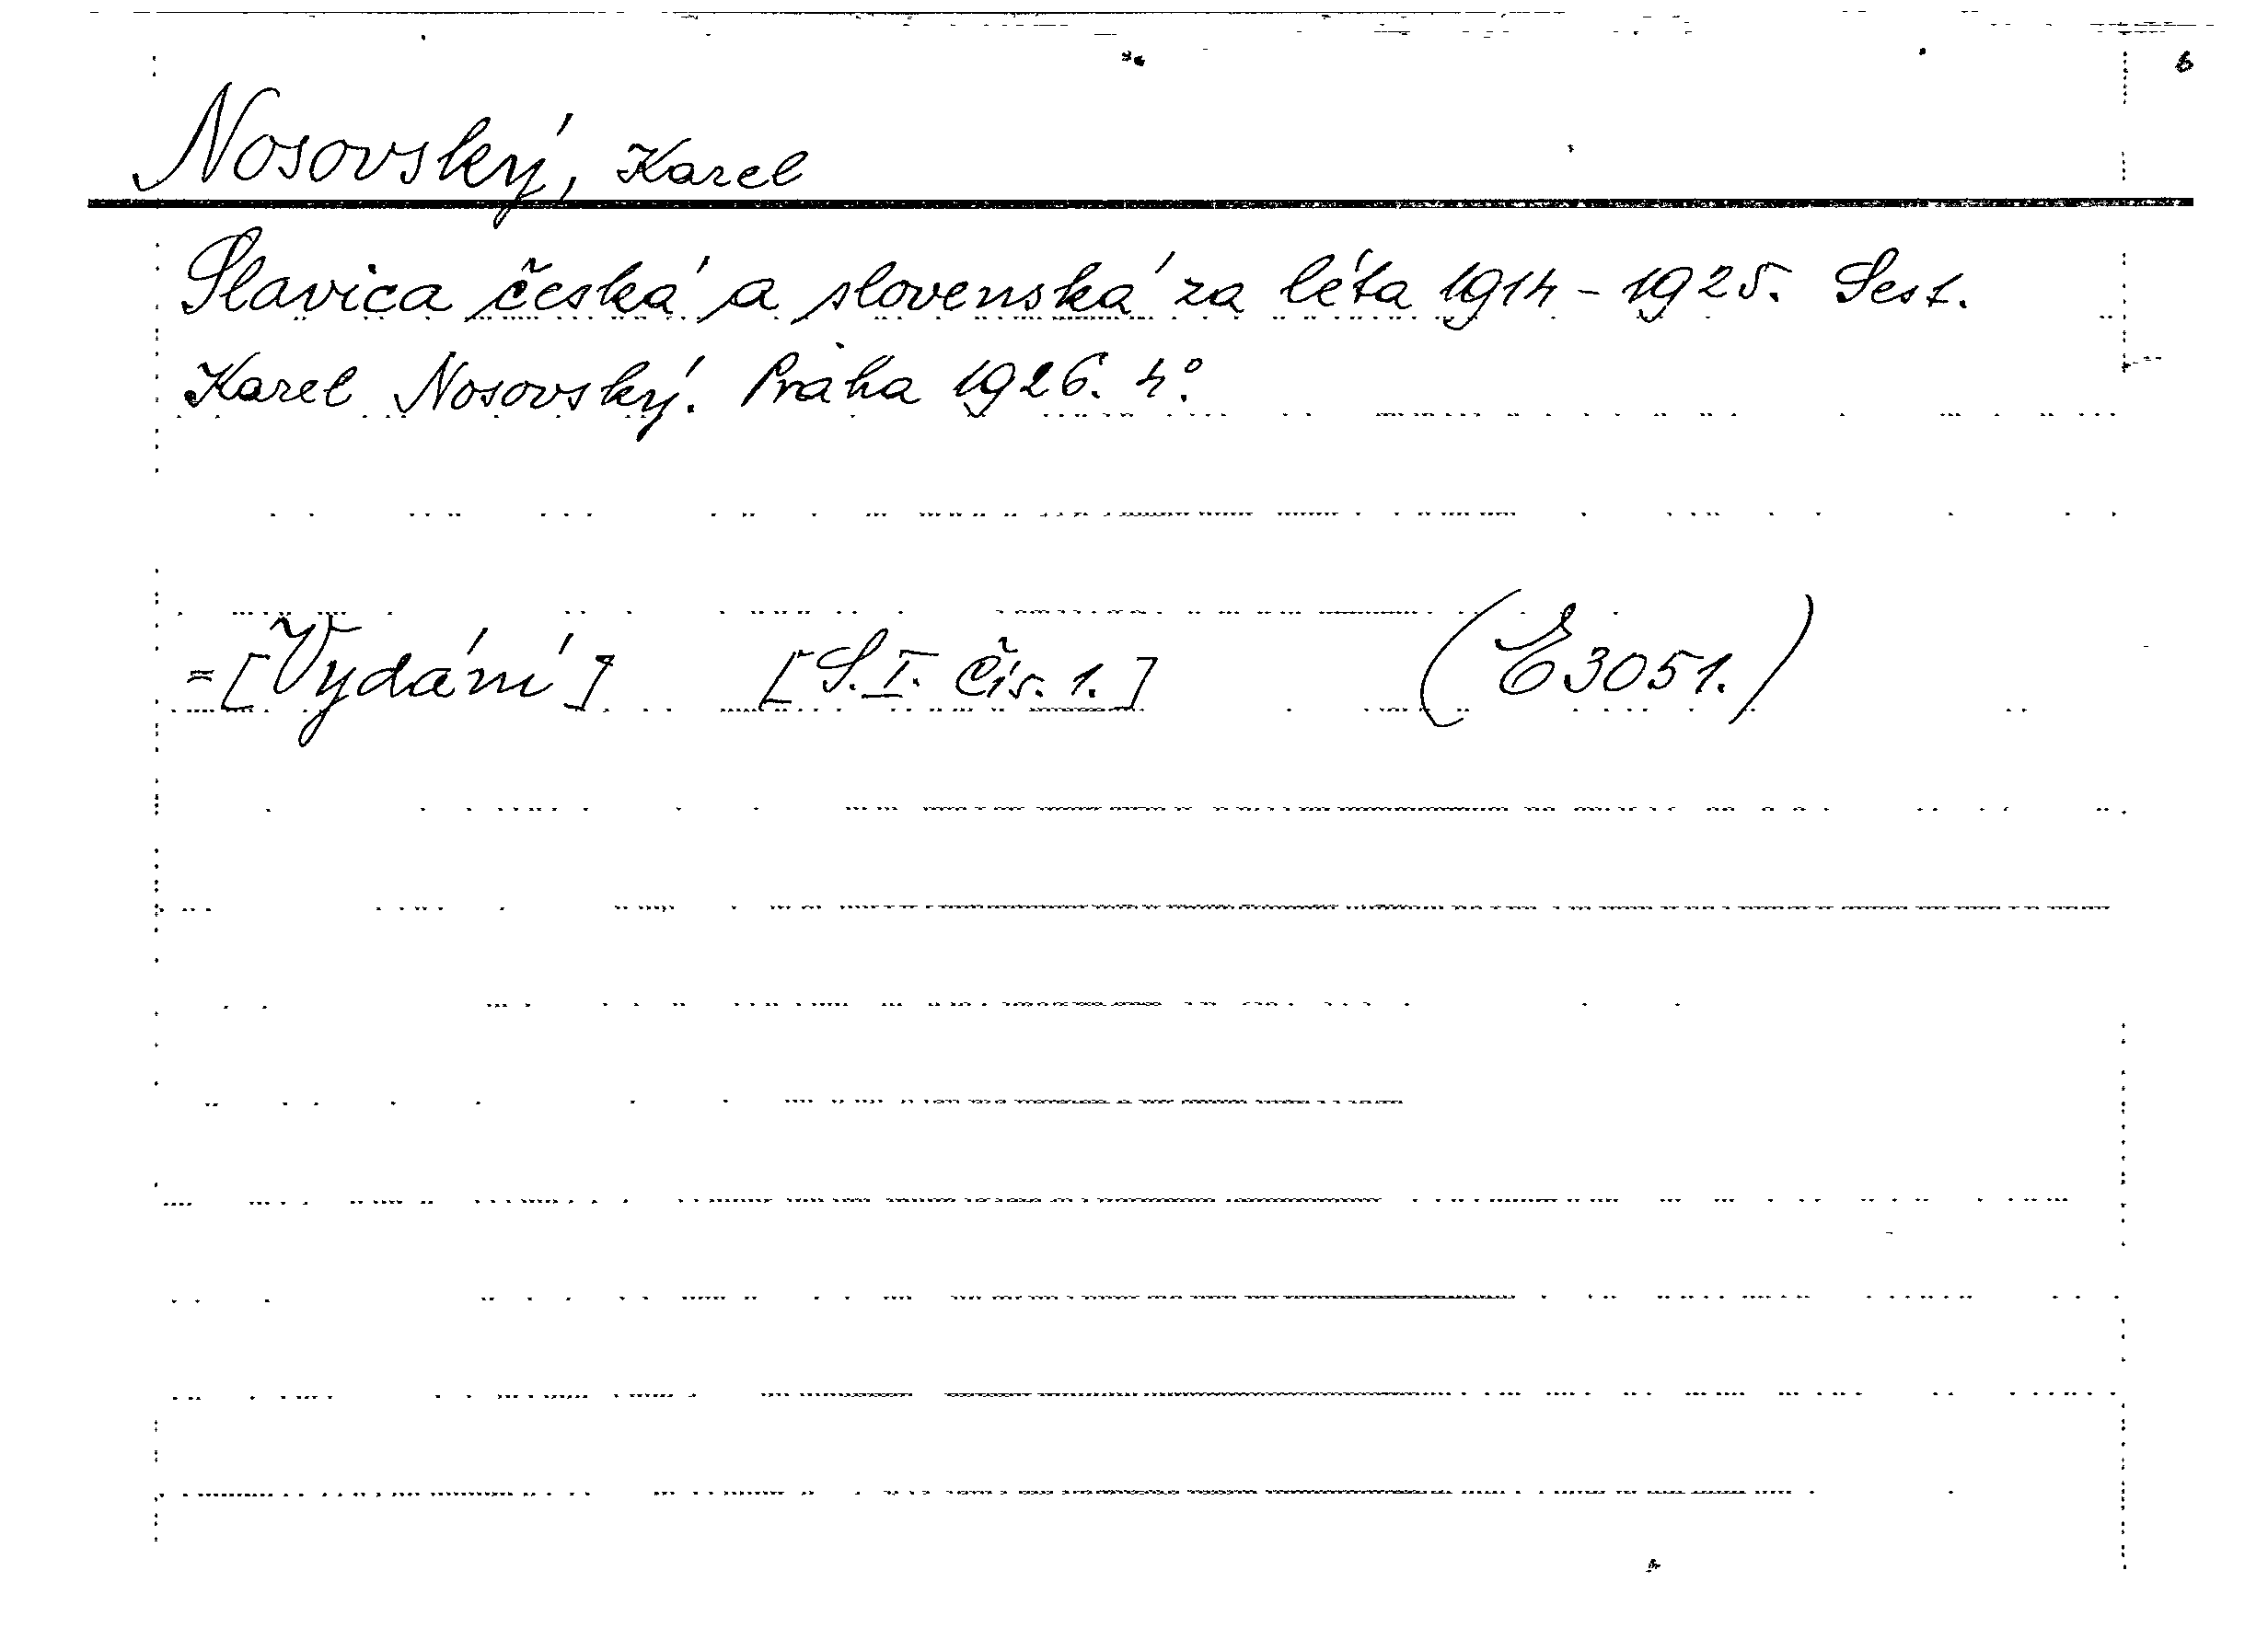 Nosovský, Karel
Slavica česká a slovenská za léta 1914-1925. Sest.
Karel Nosovský. Praha 1926. 4°.
=[Vydání] [S.I. Čís. 1.] (E3051.)